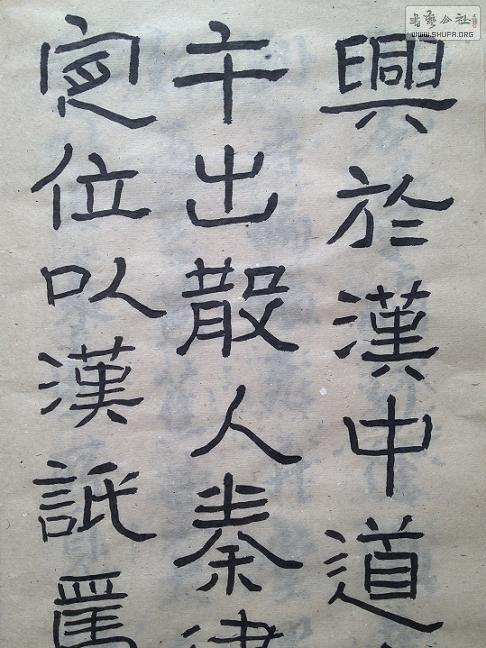 書藝公社
WWW.SHUFA.ORG
興於漢中道
午出散入秦
定位以漢詆